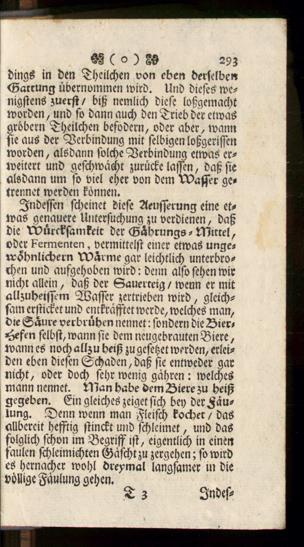 ( o ) 293
dings in den Theilchen von eben derselben
Gattung übernommen wird. Und dieses we-
nigstens zuerst / biß nemlich diese loßgemacht
worden, und so dann auch den Trieb der etwas
gröbern Theilchen befodern, oder aber, wann
sie aus der Verbindung mit selbigen loßgerissen
worden, alsdann solche Verbindung etwas er-
weitert und geschwächt zurücke lassen, daß sie
alsdann um so viel eher von dem Wasser ge-
trennet werden können.
Indessen scheinet diese Aeusserung eine et-
was genauere Untersuchung zu verdienen, daß
die Würcksamkeit der Gährungs-Mittel,
oder Fermenten, vermittelst einer etwas unge-
wöhnlichern Wärme gar leichtlich unterbro-
chen und aufgehoben wird: denn also sehen wir
nicht allein, daß der Sauerteig / wenn er mit
allzuheissem Wasser zertrieben wird, gleich-
sam ersticket und entkräfftet werde, welches man,
die Säure verbrühen nennet: sondern die Bier-
Hefen selbst, wann sie dem neugebrauten Biere,
wann es noch allzu heiß zu gesetzet werden, erlei-
den eben diesen Schaden, daß sie entweder gar
nicht, oder doch sehr wenig gähren: welches
mann nennet. Man habe dem Biere zu heiß
gegeben. Ein gleiches zeiget sich bey der Fäu-
lung. Denn wenn man Fleisch kochet / das
allbereit hefftig stinckt und schleimet, und das
folglich schon im Begriff ist, eigentlich in einen
faulen schleimichten Gäscht zu zergehen; so wird
es hernacher wohl dreymal langsamer in die
völlige Fäulung gehen.
T 3 Indes-